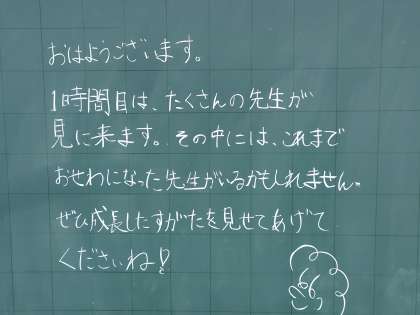 おはようございます。
1時間目は、たくさんの先生が
見に来ます。その中には、これまで
おせわになった先生がいるかもしれません。
ぜひ成長したすがたを見せてあげて
くださいね!